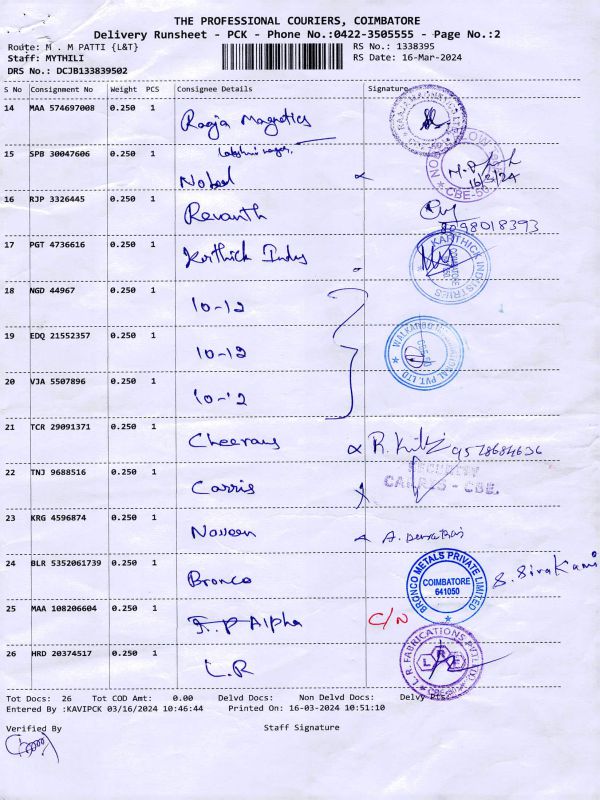 THE PROFESSIONAL COURIERS, COIMBATORE
Delivery Runsheet - PCK - Phone No.:0422-3505555 - Page No.:2
Route: M . M PATTI {L&T} RS No.: 1338395
Staff: MYTHILI RS Date: 16-Mar-2024
DRS No.: DCJB133839502
S No Consignment No Weight PCS Consignee Details Signature
14 MAA 574697008 0.250 1 Ragja Magnetics
Lakshmi nagar,
15 SPB 30047606 0.250 1 Nobel 16/3/24
CBE-50
16 RJP 3326445 0.250 1 Revanth 8098018393
17 PGT 4736616 0.250 1 Karthick Indus KARTHICK INDUSTRIES
18 NGD 44967 0.250 1 10-12
19 EDQ 21552357 0.250 1 10-12
20 VJA 5507896 0.250 1 10-12
21 TCR 29091371 0.250 1 Cheerans 9578684636
22 TNJ 9688516 0.250 1 Carris SECURITY
CARRIS - CBE.
23 KRG 4596874 0.250 1 Naveen
24 BLR 5352061739 0.250 1 Bronco BRONCO METALS PRIVATE LIMITED
COIMBATORE
641050
S. Sivakami
25 MAA 108206604 0.250 1 F.P Alpha C/N
26 HRD 20374517 0.250 1 L.R L.R. FABRICATIONS PVT. LTD.
LRF
Tot Docs: 26 Tot COD Amt: 0.00 Delvd Docs: Non Delvd Docs: Delvy Pts:
Entered By :KAVIPCK 03/16/2024 10:46:44 Printed On: 16-03-2024 10:51:10
Verified By Staff Signature